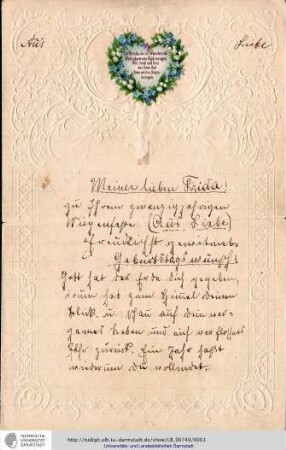 Aus Liebe
Meiner lieben Frida!
zu Ihrem zwanzigjährigen
Wiegenfeste. (Aus Liebe)
freundlichst gewidmet
Geburtstagswunsch!
Gott hat der Erde dich gegeben,
drum heb zum Himel deinen
Blick u. schau auf dein ver-
gangnes Leben und auf verfloßnes
Jahr zurück. Ein Jahr hast
wiederum du vollendet.
http://tudigit.ulb.tu-darmstadt.de/show/LB_00749/0001
Universitäts- und Landesbibliothek Darmstadt